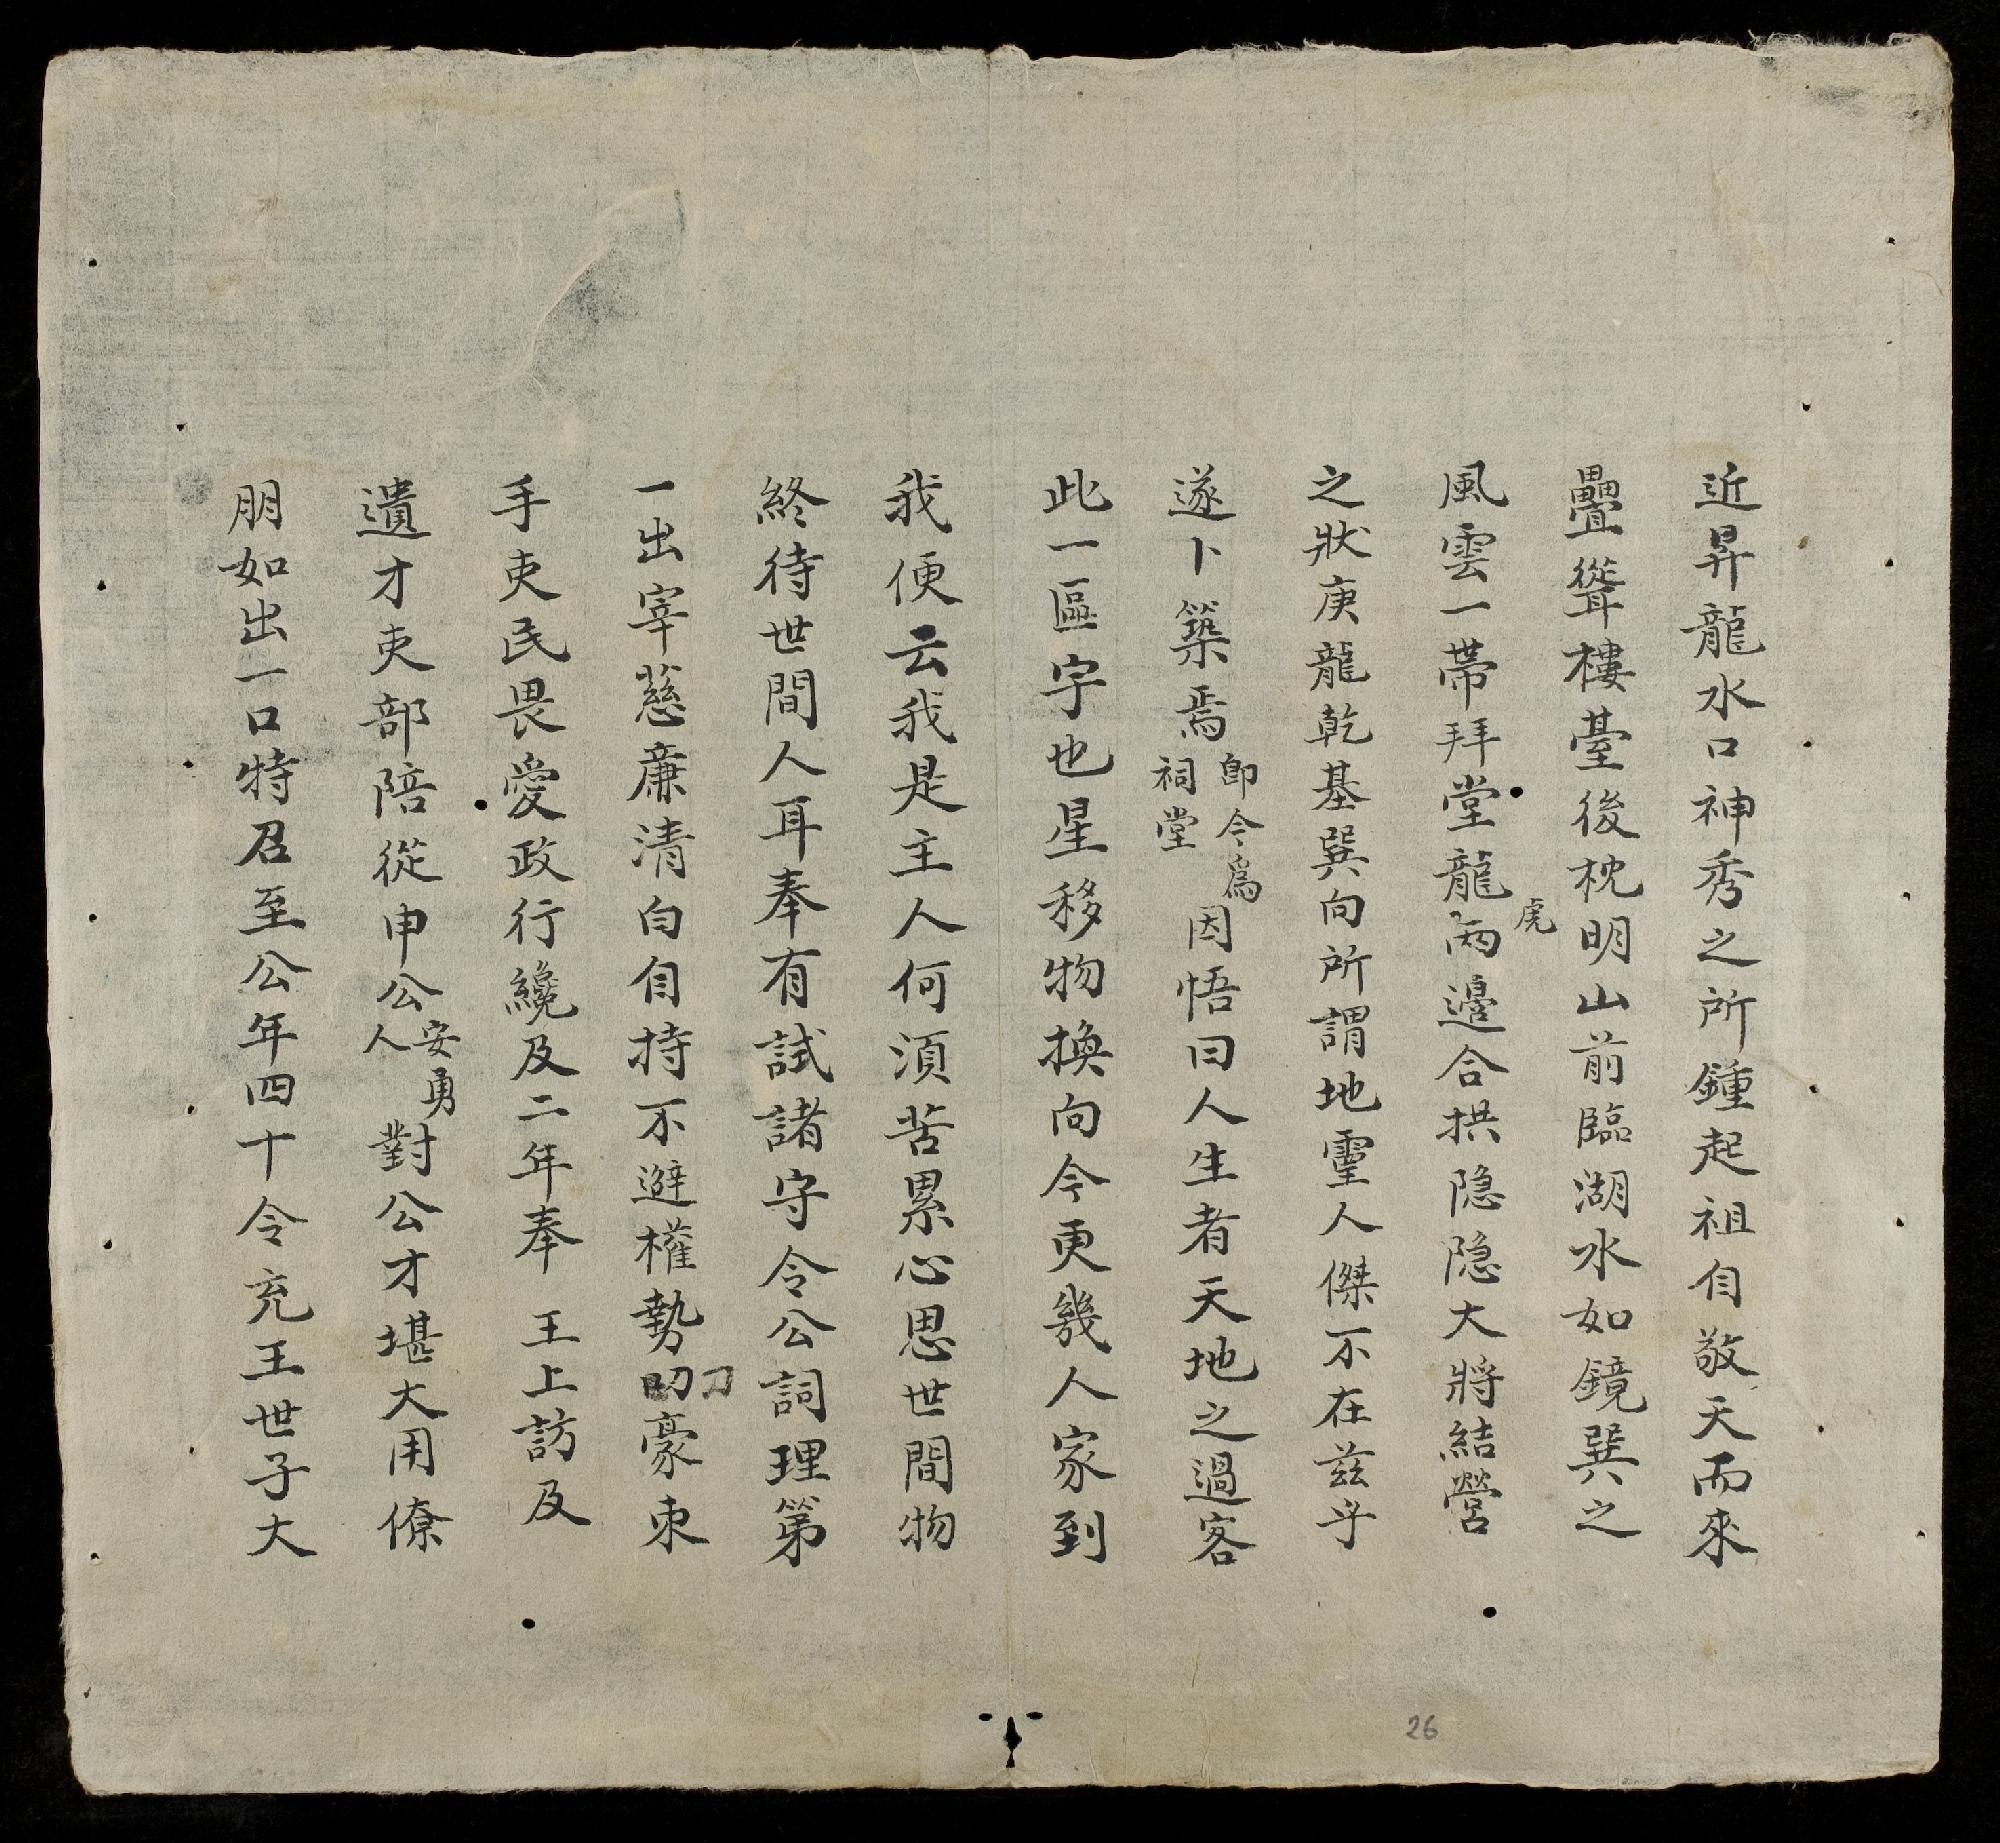 近昇龍水口神秀之所鍾起祖自敬天而來
疊聳樓臺後枕明山前臨湖水如鏡巽之
風雲一帶拜堂龍虎兩邊合拱隐隐大將結營
之狀庚龍乾基巽向所謂地靈人傑不在兹乎
遂卜築焉即今爲祠堂因悟曰人生者天地之過客
此一區宇也星移物換向今更幾人家到
我便云我是主人何須苦累心思世間物
終待世間人耳奉有試諸守令公詞理第
一出宰慈廉清白自持不避權勢豪束
手吏民畏愛政行纔及二年奉 王上訪及
遺才吏部陪從申公安勇人對公才堪大用僚
朋如出一口特召至公年四十令充王世子大
26